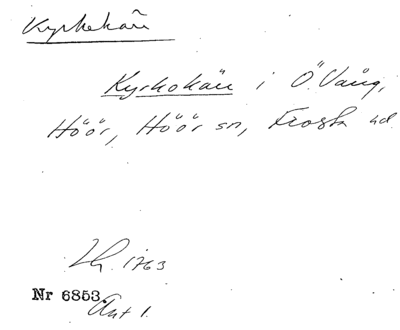 Kyrkekän
Kyrkokän i Ö. Vång,
Höör, Höör sn, Frosta hd
Lh. 1763
Nr 6853.
Akt 1.